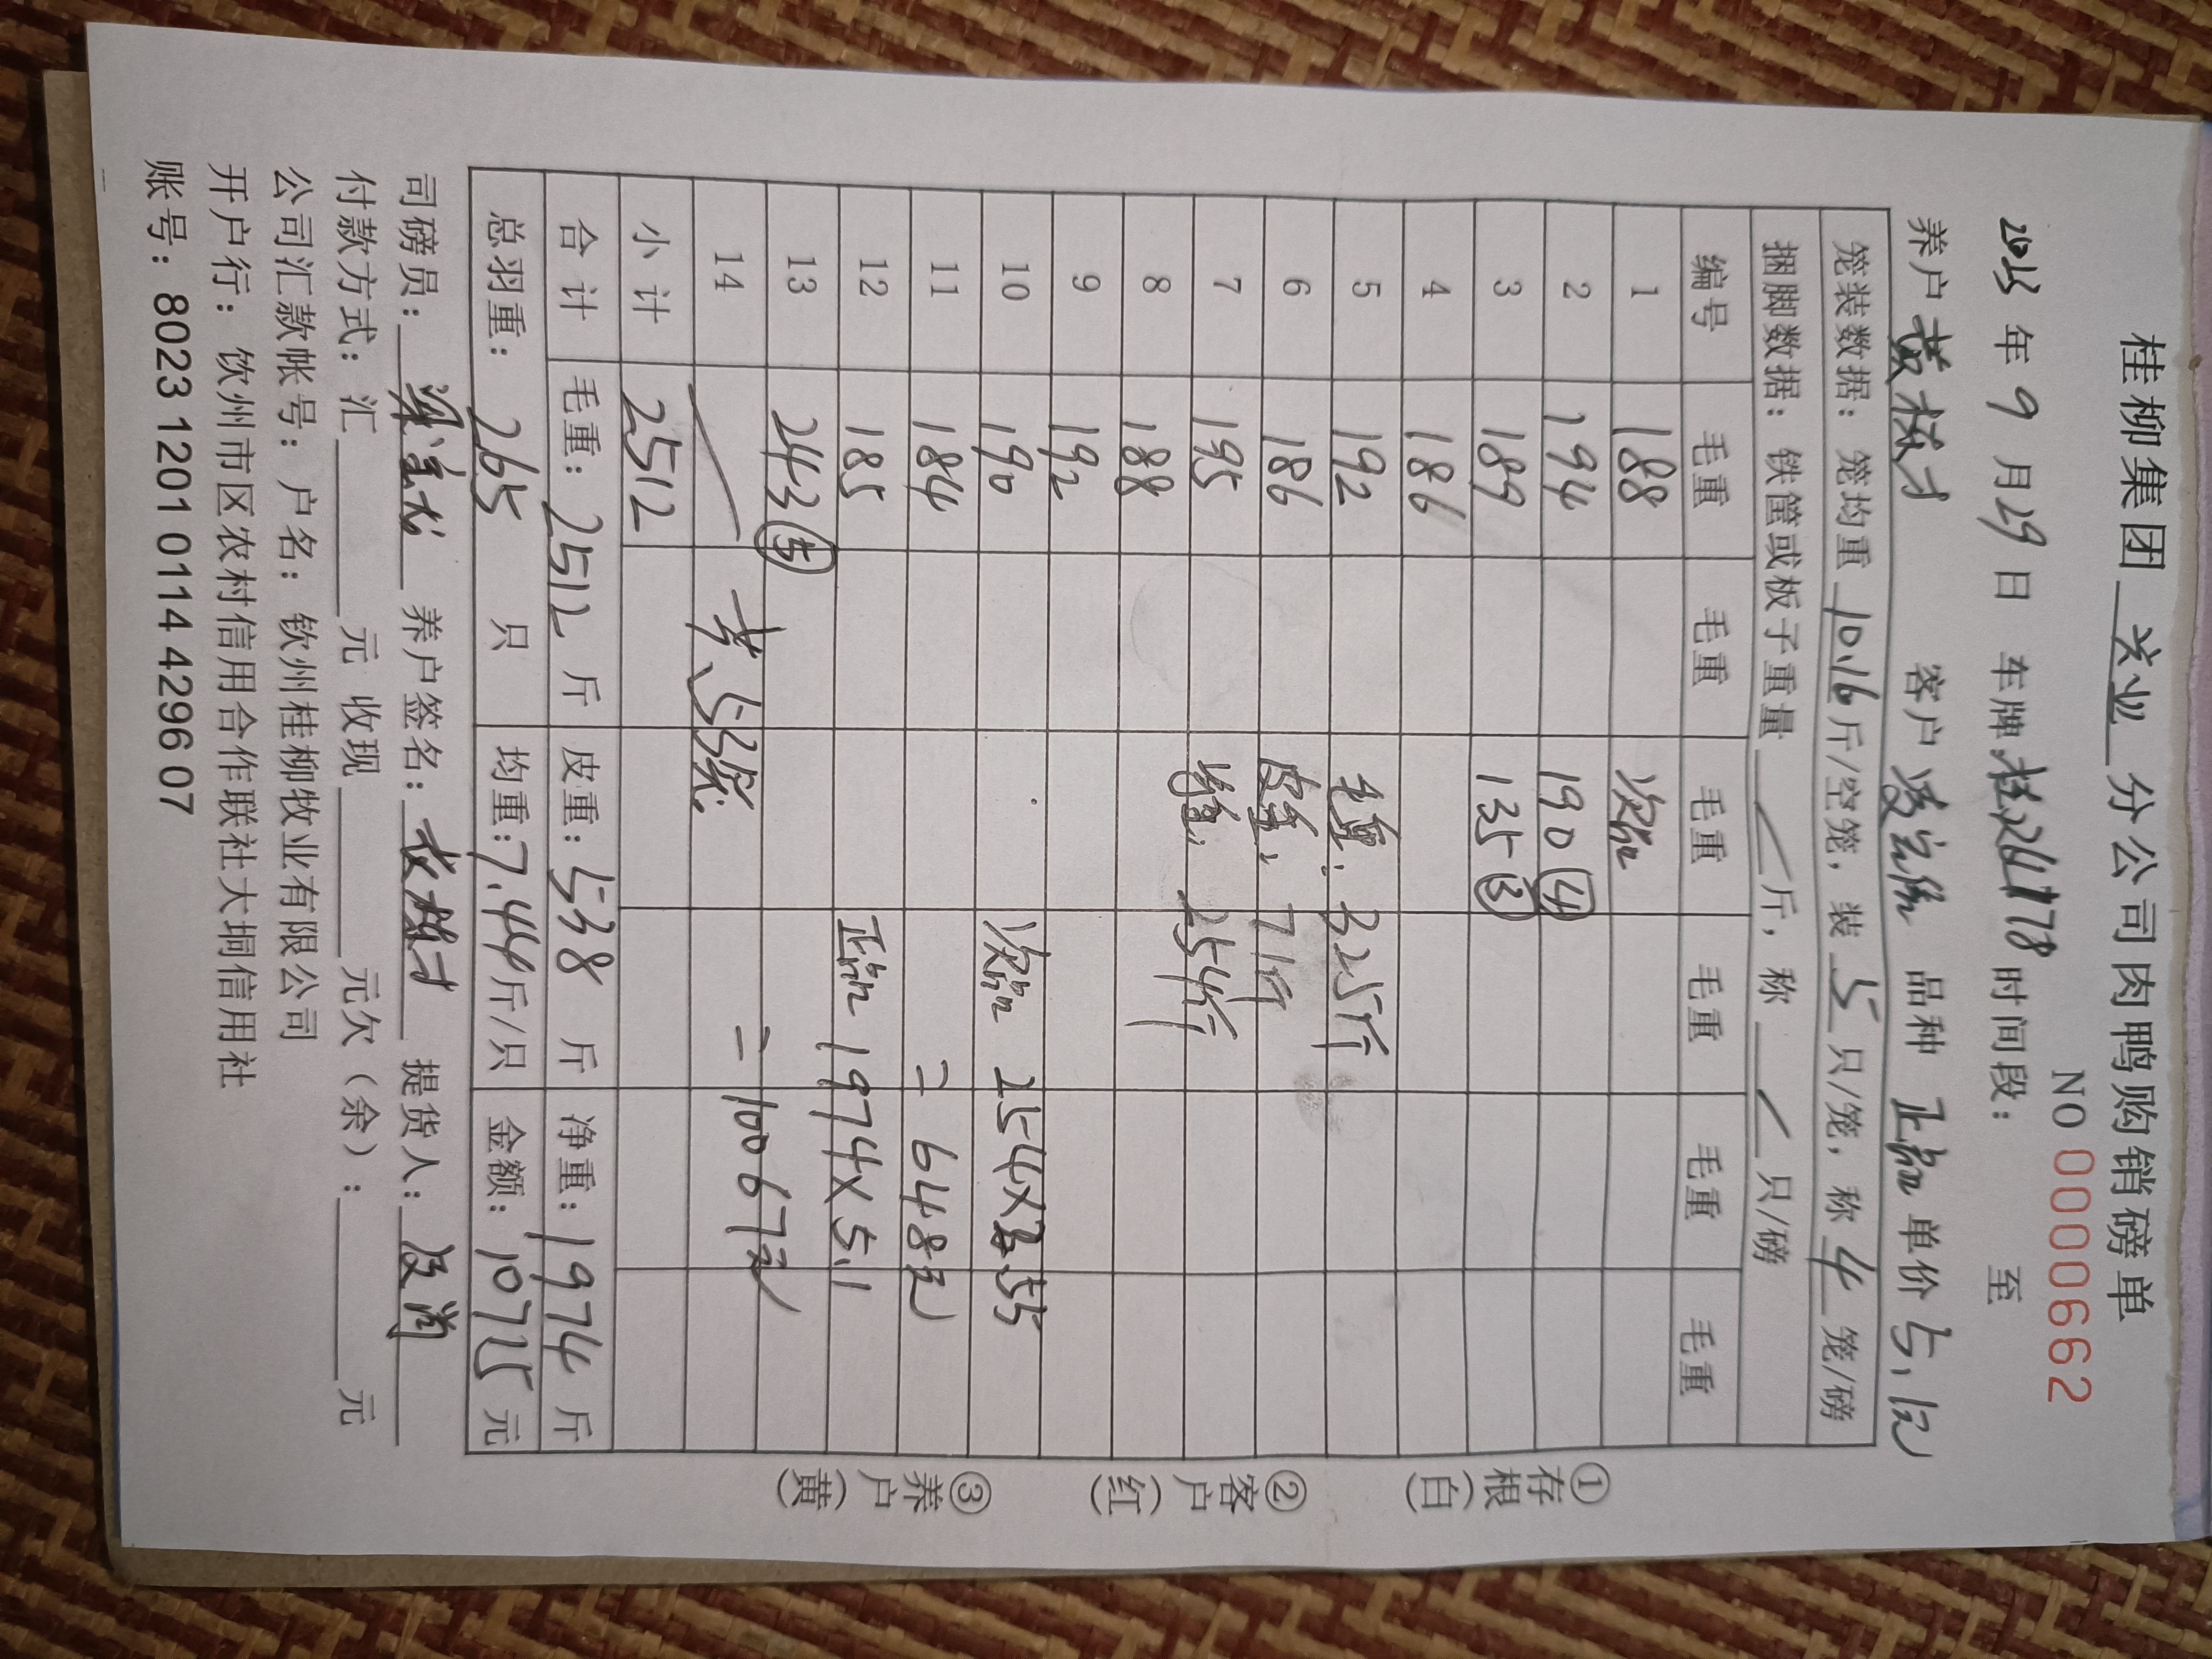 桂柳集团 兴业 分公司肉鸭购销磅单
NO 0000662
2023 年 9 月 29 日 车牌 桂 时间段： 至
养户 黄 才 客户 品种 正品 单价 5.1元
笼装数据：笼均重 10.16 斤/空笼，装 5 只/笼，称 4 笼/磅
捆脚数据：铁筐或板子重量 / 斤，称 / 只/磅
编号 毛重 毛重 毛重 毛重 毛重 毛重
1 188 次品
2 194 190 ④
3 189 135 ③
4 186
5 192 毛重：325斤
6 186 皮重：71斤
7 195 净重：254斤
8 188
9 192
10 190 次品 254×2.55
11 184 =648元
12 185 正品 1974×5.1
13 243 ⑤
14 / 共、53笼 =10067元
小计 2512
合计 毛重：2512 斤 皮重：538 斤 净重：1974 斤
总羽重： 265 只 均重：7.44斤/只 金额：10715 元
司磅员： 养户签名： 提货人：
付款方式：汇 元 收现 元欠（余）： 元
公司汇款帐号：户名：钦州桂柳牧业有限公司
开户行：钦州市区农村信用合作联社大垌信用社
账号：8023 1201 0114 4296 07
①存根（白）
②客户（红）
③养户（黄）